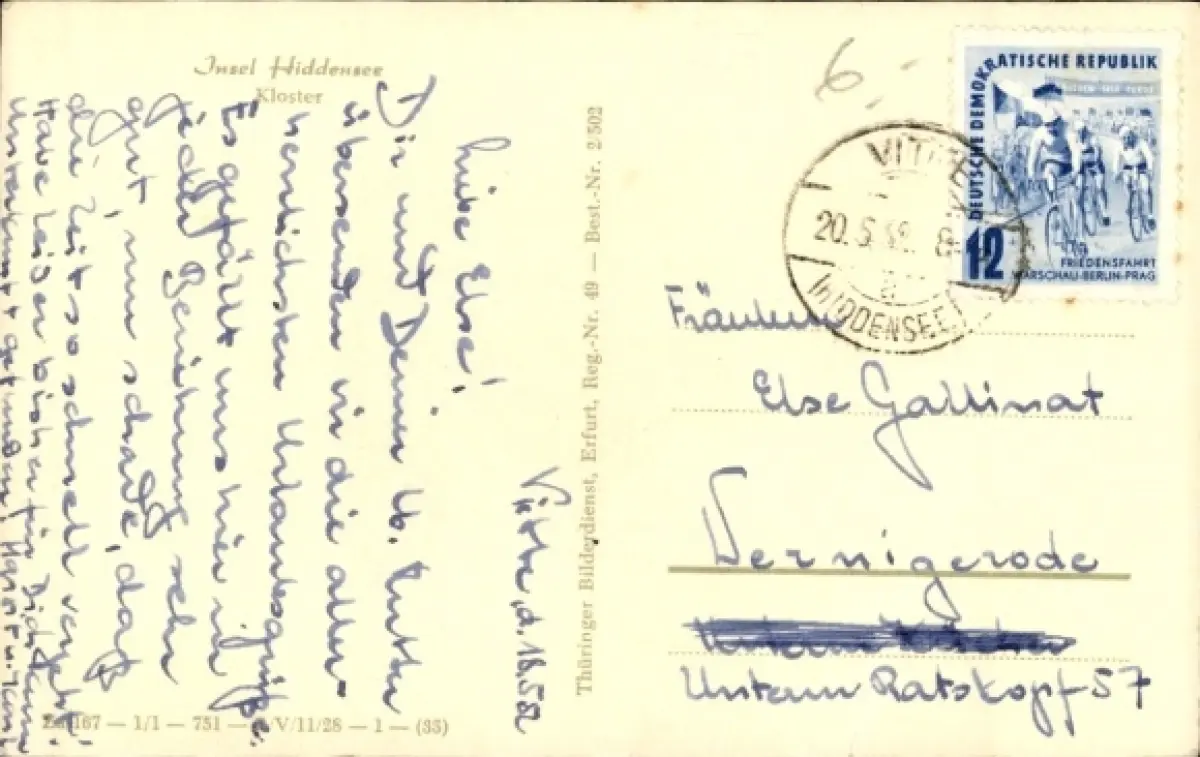 Insel Hiddensee
Kloster
Vitte, d. 18.5.52
Liebe Else!
Dir und Deiner lb. Mutter
übersenden wir die aller-
herzlichsten Urlaubsgrüße.
Es gefällt uns hier in
jeder Beziehung sehr
gut, nur schade, daß
die Zeit so schnell vergeht.
Habe leider bisher für Dich kein
Unterkunft gefunden.
Thüringer Bilderdienst, Erfurt, Reg.-Nr. 49 — Best.-Nr. 2/502
167 — 1/1 — 751 — V/11/28 — 1 — (35)
6.-
DEUTSCHE DEMOKRATISCHE REPUBLIK
12
FRIEDENSFAHRT
WARSCHAU-BERLIN-PRAG
VITTE
20.5.52
(HIDDENSEE)
Fräulein
Else Gallinat
Wernigerode
Unterm Ratskopf 57